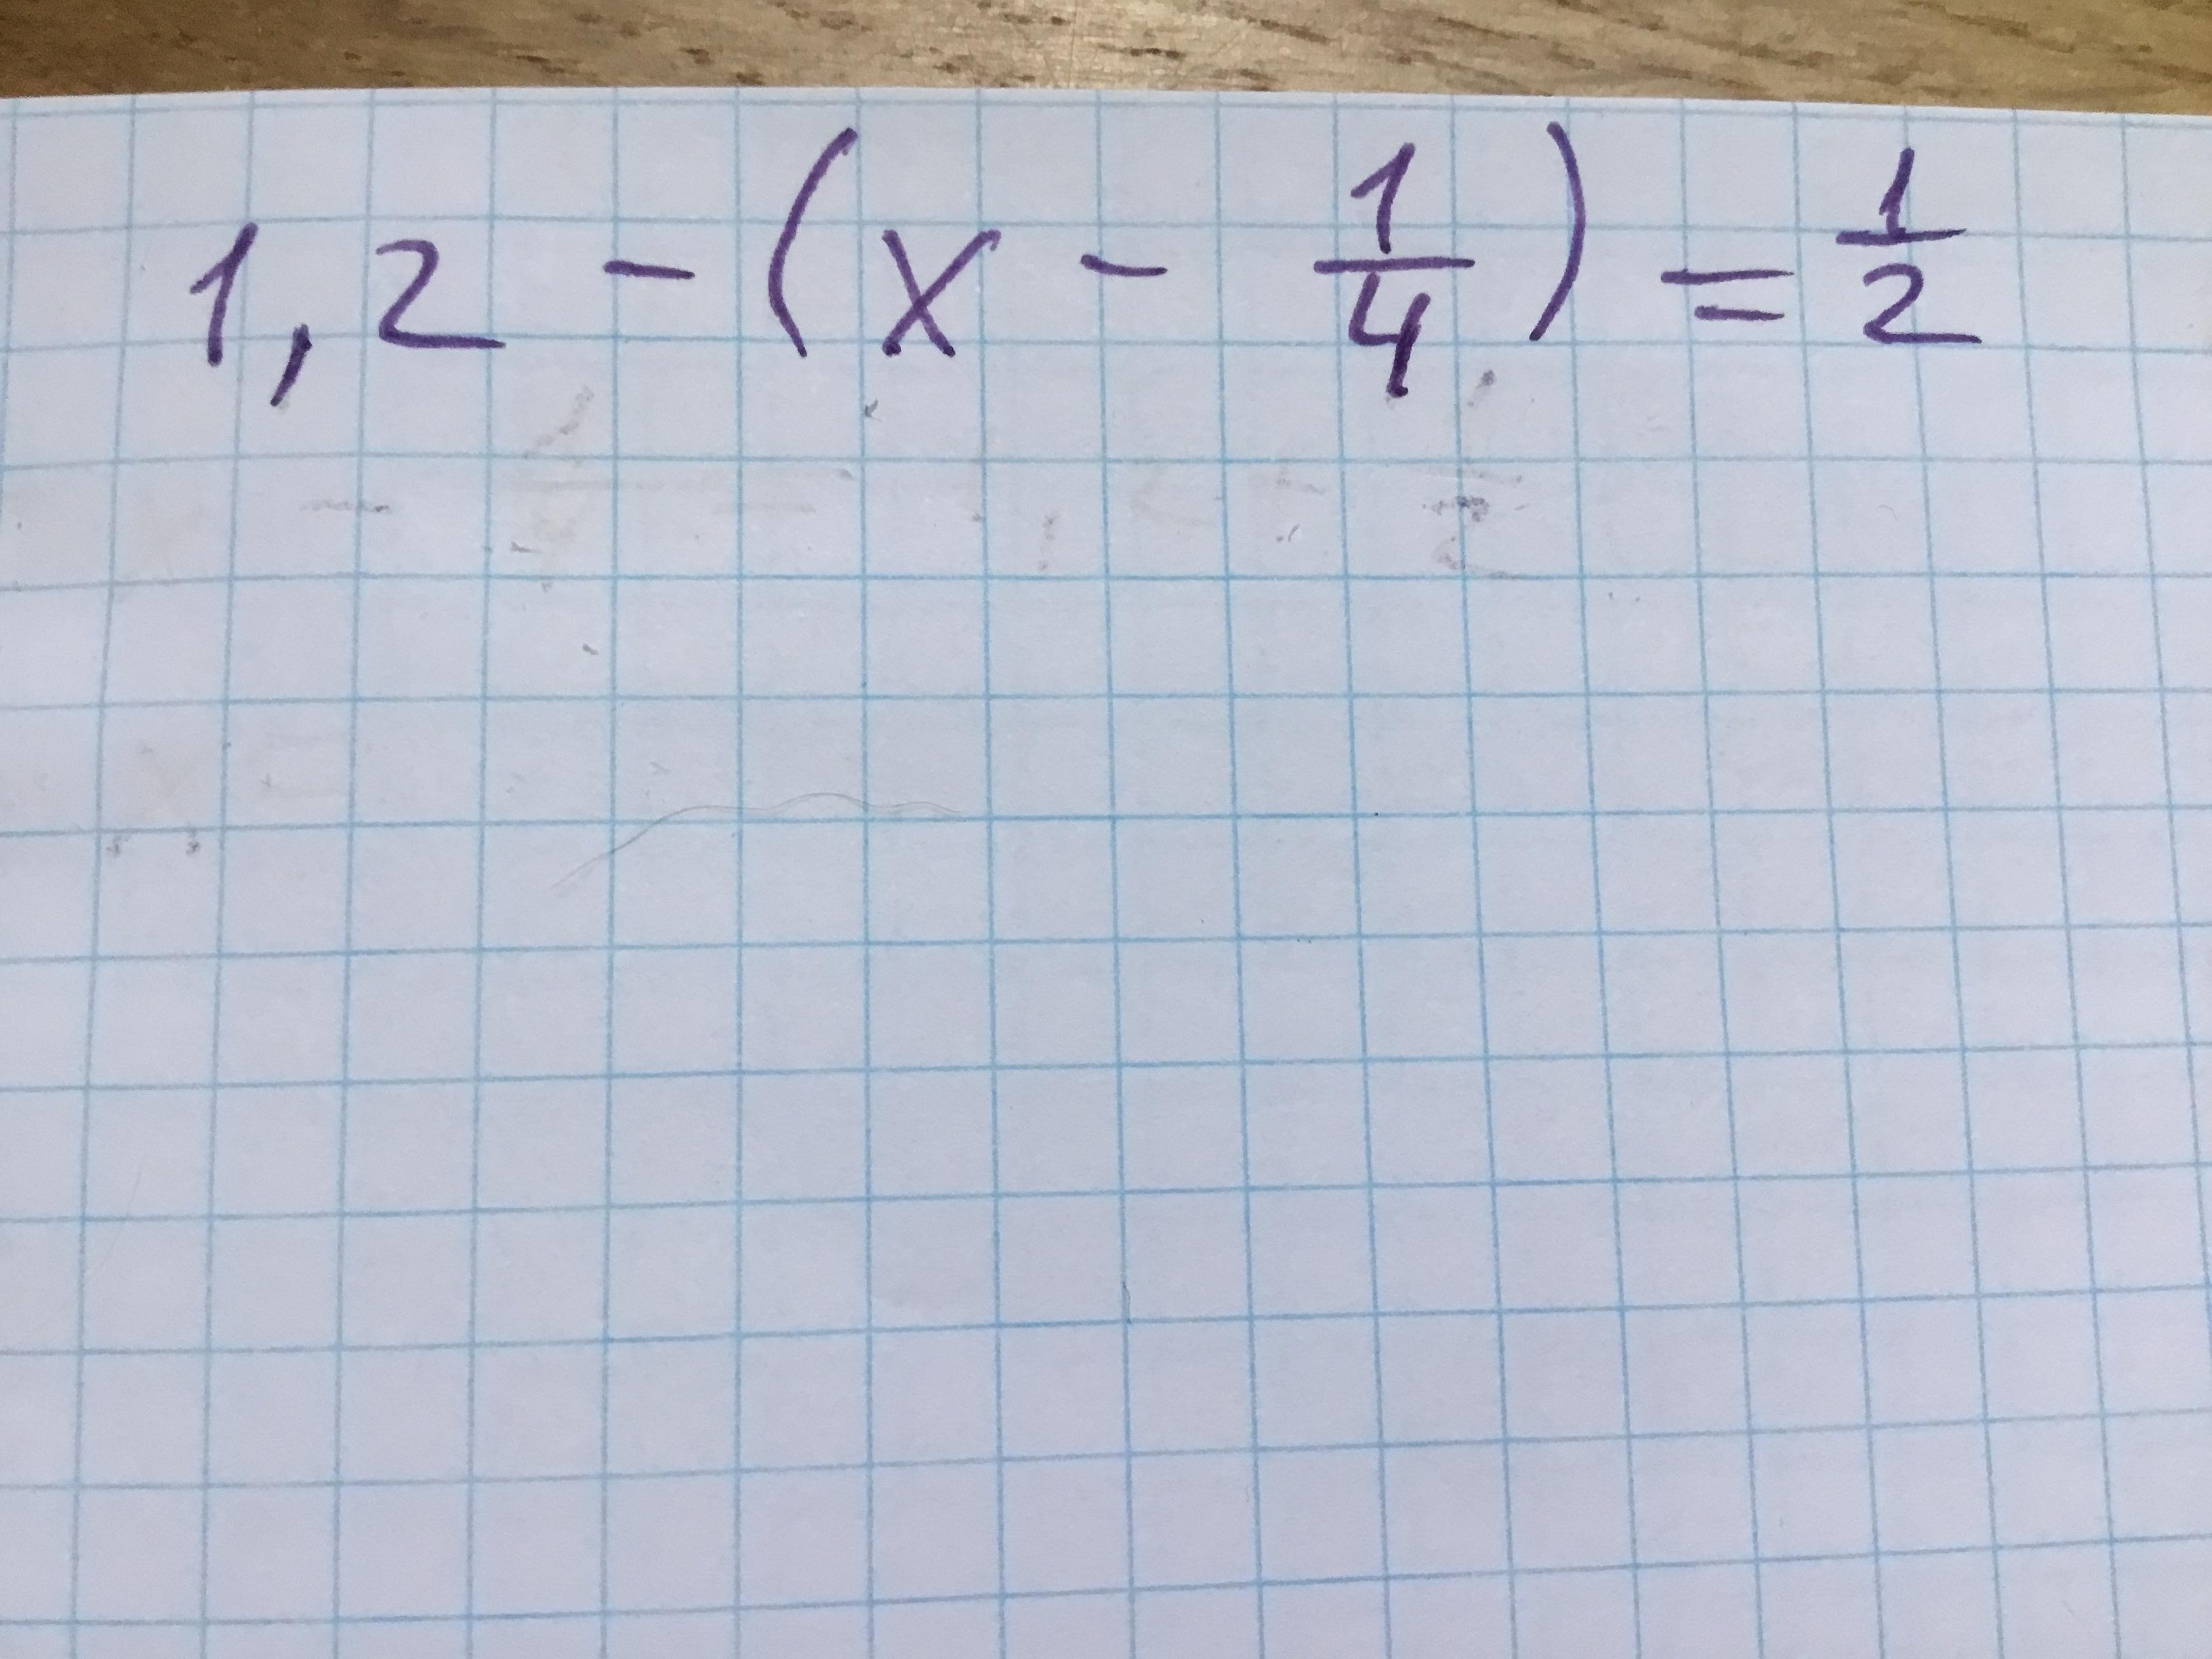 1,2 - (x - 1/4) = 1/2